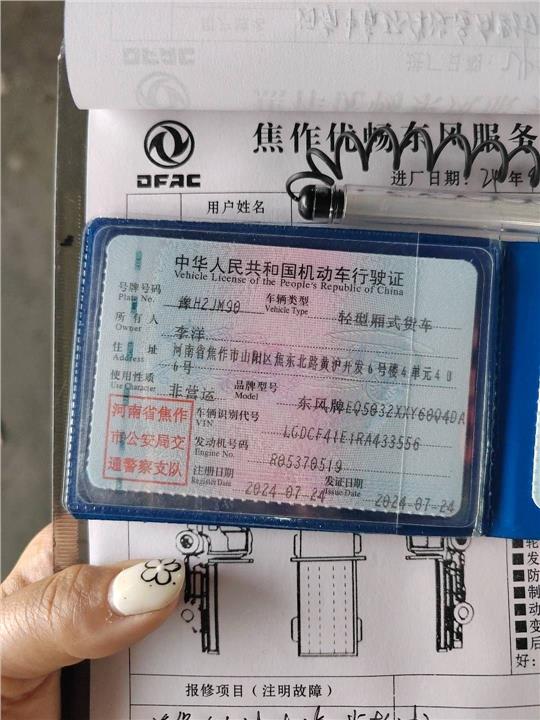 DFAC
焦作优畅东风服务
进厂日期：24年
用户姓名
中华人民共和国机动车行驶证
Vehicle License of the People's Republic of China
号牌号码 豫H2JM90 车辆类型 轻型厢式货车
Plate No. Vehicle Type
所有人 李洋
Owner
住址 河南省焦作市山阳区焦东北路黄沪开发6号楼4单元40
Address 6号
使用性质 非营运 品牌型号 东风牌EQ5032XXY60Q4DA
Use Character Model
河南省焦作
市公安局交
通警察支队
车辆识别代号 LGDCF41E1RA433556
VIN
发动机号码 R05370519
Engine No.
注册日期 2024-07-24 发证日期 2024-07-24
Register Date Issue Date
报修项目（注明故障）
发
防
制
动
变
后
好：